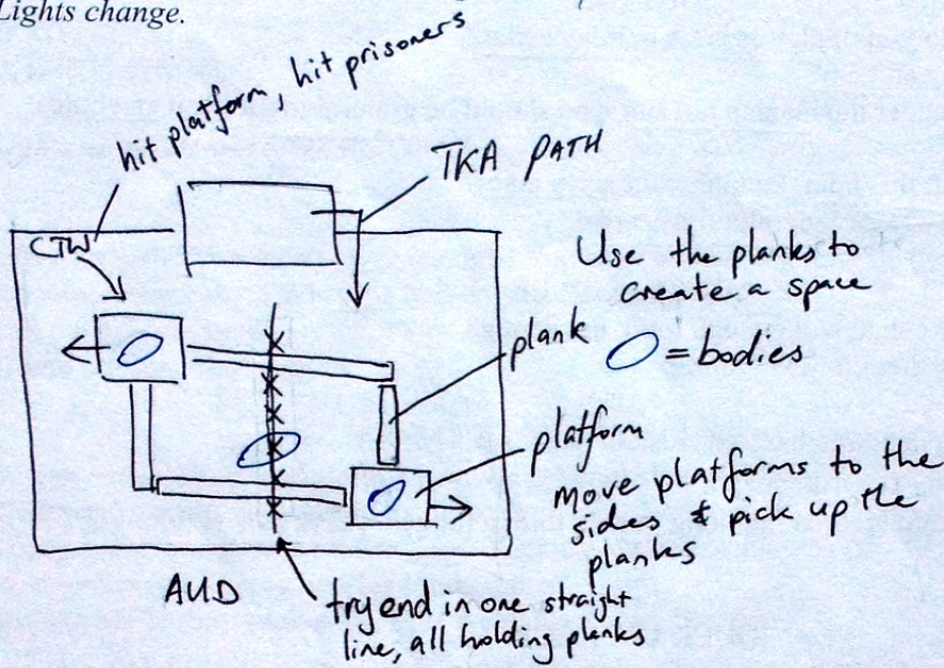 Lights change.
hit platform, hit prisoners
TKA PATH
CTW
Use the planks to
create a space
= bodies
plank
platform
move platforms to the
sides & pick up the
planks
AUD
try end in one straight
line, all holding planks